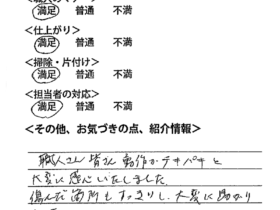 満足 普通 不満
<仕上がり>
満足 普通 不満
<掃除・片付け>
満足 普通 不満
<担当者の対応>
満足 普通 不満
<その他、お気づきの点、紹介情報>
職人さん皆さん動作がテキパキと
大変に感心いたしました。
傷んだ箇所もすっきりし、大変に助かり